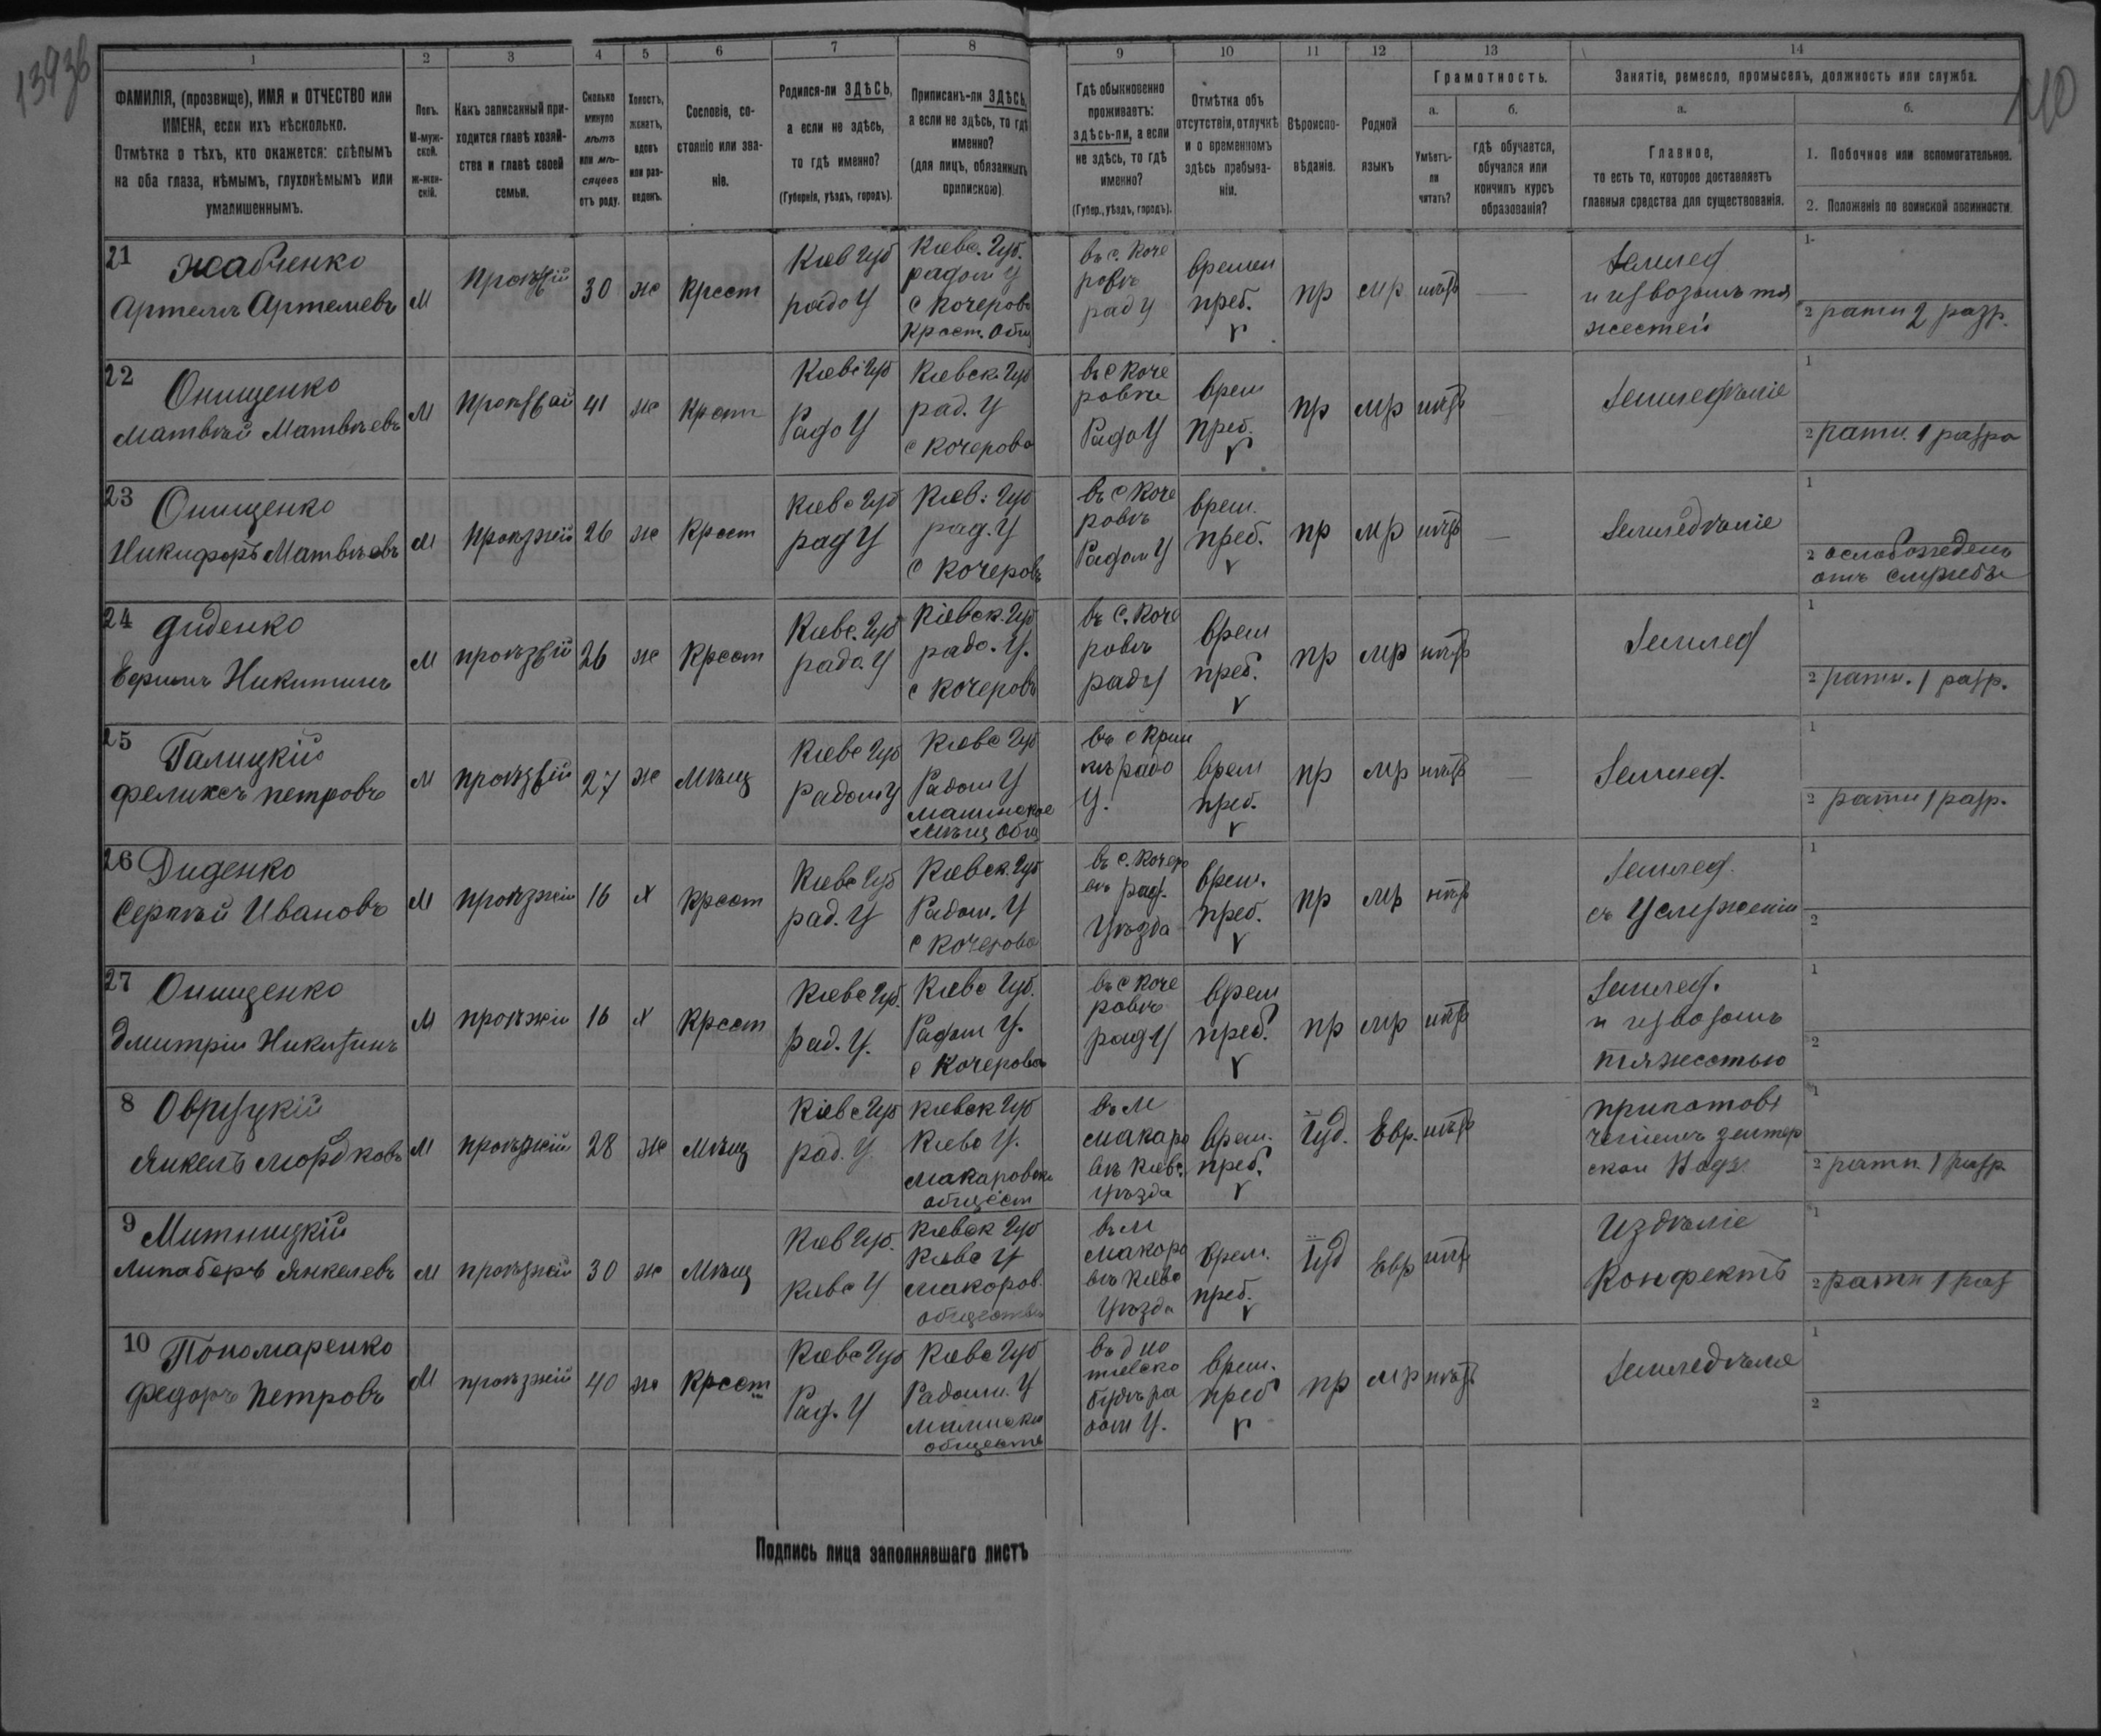 13936
110
1 2 3 4 5 6 7 8 9 10 11 12 13 14
ФАМИЛІЯ, (прозвище), ИМЯ и ОТЧЕСТВО или
ИМЕНА, если ихъ нѣсколько.
Отмѣтка о тѣхъ, кто окажется: слѣпымъ
на оба глаза, нѣмымъ, глухонѣмымъ или
умалишеннымъ.
Полъ.
М-муж-
ской.
ж-жен-
скій.
Какъ записанный при-
ходится главѣ хозяй-
ства и главѣ своей
семьи.
Сколько
минуло
лѣтъ
или мѣ-
сяцевъ
отъ роду.
Холостъ,
женатъ,
вдовъ
или раз-
веденъ.
Сословіе, со-
стояніе или зва-
ніе.
Родился-ли ЗДѢСЬ,
а если не здѣсь,
то гдѣ именно?
(Губернія, уѣздъ, городъ).
Приписанъ-ли ЗДѢСЬ,
а если не здѣсь, то гдѣ
именно?
(для лицъ, обязанныхъ
припискою).
Гдѣ обыкновенно
проживаетъ:
здѣсь-ли, а если
не здѣсь, то гдѣ
именно?
(Губер., уѣздъ, городъ).
Отмѣтка объ
отсутствіи, отлучкѣ
и о временномъ
здѣсь пребыва-
ніи.
Вѣроиспо-
вѣданіе.
Родной
языкъ
Грамотность.
а.
Умѣетъ-
ли
читать?
б.
гдѣ обучается,
обучался или
кончилъ курсъ
образованія?
Занятіе, ремесло, промыселъ, должность или служба.
а.
Главное,
то есть то, которое доставляетъ
главныя средства для существованія.
б.
1. Побочное или вспомогательное.
2. Положеніе по воинской повинности.
21 Жабченко
Артемъ Артемевъ
М
30
же
Крест
Киев Губ
радо У
Киевс. Губ.
радом У
с Кочерово
Крест. Общ
въ с. Коче
ровѣ
рад У
времен
преб.
пр
мр
нѣтъ
Землед
и извозомъ тя
жестей
1
2 ратн 2 разр.
22
Онищенко
Матвѣй Матвѣевъ
М
41
же
Крест
Киевс Губ
Радо У
Киевск. Губ
рад. У
с Кочерово
въ с Коче
ровѣ
Радо У
врем
преб.
пр
мр
нѣтъ
Земледѣліе
1
2 ратн. 1 разр
23
Онищенко
Никифоръ Матвѣевъ
М
проѣзжій
26
же
Крест
Киевс Губ
рад У
Киев: Губ
рад. У
с Кочеровъ
въ с Коче
ровѣ
Радом У
врем.
преб.
пр
мр
нѣтъ
Земледѣліе
1
2 ослобожеденъ
отъ службы
24
Диденко
Ефимъ Никитинъ
М
26
же
Крест
Киевс. Губ
радо. У
Кіевск. Губ
радо. У.
с Кочеровъ
въ с. Коче
ровѣ
рад У
врем
преб.
пр
мр
нѣтъ
Землед
1
2 ратн. 1 разр.
25
Галицкій
Феликсъ Петровъ
М
27
же
Мѣщ
Киевс Губ
Радом У
Киевс Губ
Радом У
Малинское
Мѣщ Общ
У.
врем
преб.
пр
мр
нѣтъ
Землед.
1
2 ратн 1 разр.
26 Диденко
Сергѣй Ивановъ
М
проѣзжій
16
х
Крест
Киевс Губ
рад. У
Киевск. Губ
Радом. У
с Кочерово
въ с. Кочеро
вѣ рад.
Уѣзда
врем.
преб.
пр
мр
нѣтъ
Землед.
въ Услуженіи
1
2
27
Онищенко
Дмитрій Никитинъ
М
16
х
Крест
Киевс Губ.
рад. У.
Киевс Губ.
Радом У.
с Кочерово
въ с Коче
ровѣ
рад У
врем
преб.
пр
мр
нѣтъ
Землед.
и извозомъ
тяжестью
1
2
8 Овруцкій
Янкель Мордковъ
М
проѣзжій
28
же
Мѣщ
Кіевс Губ
рад. У
Киевск Губ
Киевс У.
Макаровск
общест
въ М
Макаро
вѣ Киевс.
Уѣзда
врем.
преб.
Іуд.
Евр.
нѣтъ
1
2 ратн. 1 разр
9
Митницкій
Липаберъ Янкелевъ
М
проѣзжій
30
же
Мѣщ
Киев Губ.
Киевс У
Киевск Губ
Киевс У
Макоров.
въ М
Макоро
вѣ Киевс
Уѣзда
врем.
преб.
Іуд
Евр
нѣтъ
Издѣліе
Конфектъ
1
2 ратн 1 раз
10
Пономаренко
Федоръ Петровъ
М
проѣзжій
40
же
Крест
Киевс Губ
Рад. У
Киевс Губ
Радом. У
врем.
преб
пр
мр
нѣтъ
Земледѣліе
1
2
Подпись лица заполнявшаго листъ